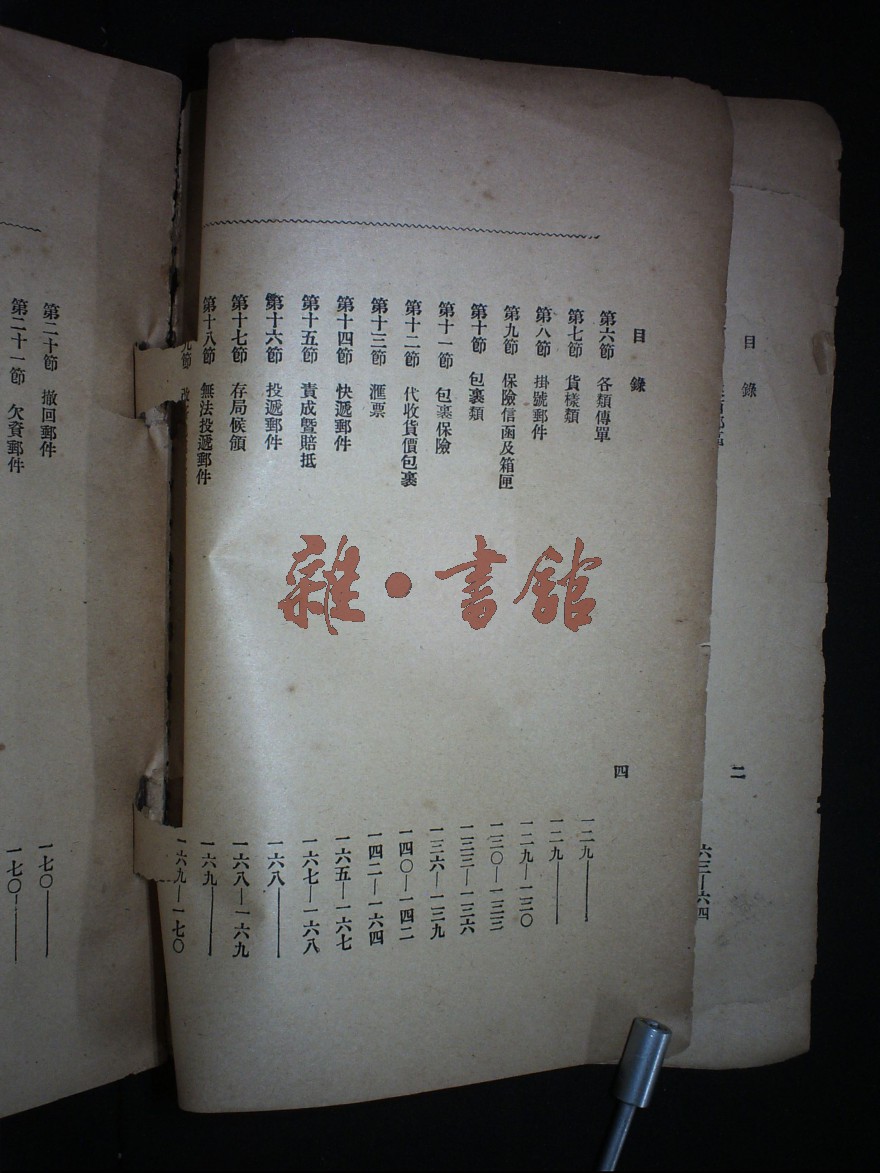 目錄 二
六三—六四
目錄 四
第六節 各類傳單 一二九——
第七節 貨樣類 一二九——
第八節 掛號郵件 一二九—一三〇
第九節 保險信函及箱匣 一三〇—一三三
第十節 包裹類 一三三—一三六
第十一節 包裹保險 一三六—一三九
第十二節 代收貨價包裹 一四〇—一四二
第十三節 滙票 一四二—一六四
第十四節 快遞郵件 一六五—一六七
第十五節 責成暨賠抵 一六七—一六八
第十六節 投遞郵件 一六八——
第十七節 存局候領 一六八—一六九
第十八節 無法投遞郵件 一六九——
九節 一六九—一七〇
第二十節 撤回郵件 一七〇——
第二十一節 欠資郵件 一七〇——
雜·書館